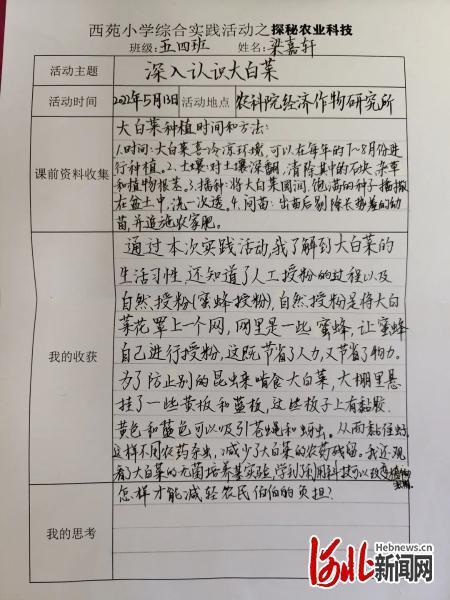 西苑小学综合实践活动之探秘农业科技
班级:五四班 姓名:梁嘉轩
活动主题 深入认识大白菜
活动时间 2021年5月13日 活动地点 农科院经济作物研究所
课前资料收集
大白菜种植时间和方法:
1.时间:大白菜喜冷凉环境,可以在每年的7~8月份进
行种植。2.土壤:对土壤深翻,清除其中的石块、杂草
和植物根茎。3.播种:将大白菜圆润、饱满的种子播撒
在盆土中,浇一次透。4.间苗:出苗后剔除长势差的幼
苗,并追施农家肥。
我的收获
通过本次实践活动,我了解到大白菜的
生活习性,还知道了人工授粉的过程以及
自然授粉(蜜蜂授粉),自然授粉是将大白
菜花罩上一个网,网里是一些蜜蜂,让蜜蜂
自己进行授粉,这既节省了人力,又节省了物力。
为了防止别的昆虫来啃食大白菜,大棚里悬
挂了一些黄板和蓝板,这些板子上有黏胶.
黄色和蓝色可以吸引苍蝇和蚜虫。从而黏住蚜
这样不用农药杀虫,减少了大白菜的农药残留。我还观
看了大白菜的无菌培养基实验,学到了利用科技可以改变
我的思考
怎样才能减轻农民伯伯的负担?
河北新闻网
Hebnews.cn